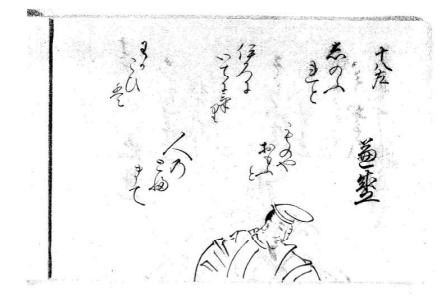 十八左
兼盛
志のふ
れと
伊ろに
いてにけり
わか
こひ
は
ものや
おもふ
と
人の
とふ
まて